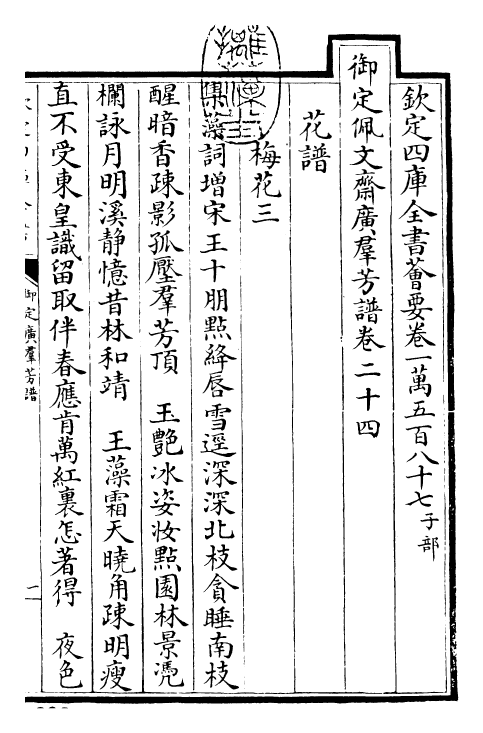 欽定四庫全書薈要卷一萬五百八十七子部
御定佩文齋廣羣芳譜卷二十四
花譜
梅花三
集藻詞增宋王十朋點絳唇雪逕深深北枝貪睡南枝
醒暗香疎影孤壓羣芳頂 玉艷冰姿妝點園林景凭
欄詠月明溪静憶昔林和靖 王藻霜天曉角疎明瘦
直不受東皇識留取伴春應肯萬紅裏怎著得 夜色
御定廣羣芳譜
一